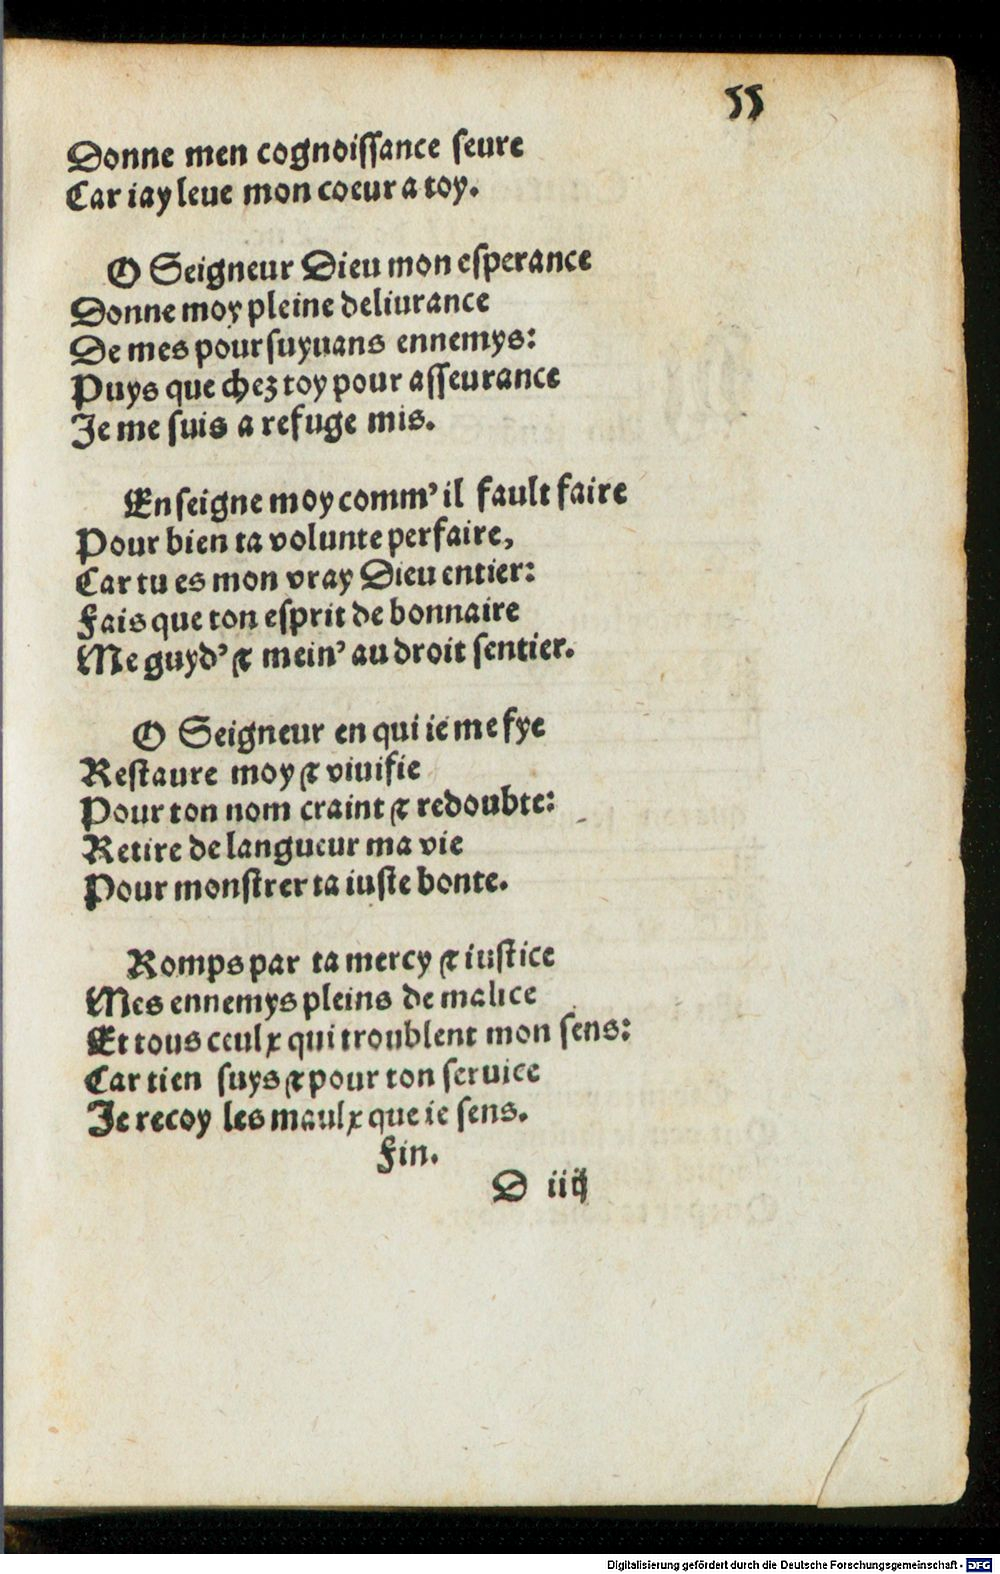 55
Donne men cognoissance seure
Car iay leue mon coeur a toy.
O Seigneur Dieu mon esperance
Donne moy pleine deliurance
De mes poursuyuans ennemys:
Puys que chez toy pour asseurance
Je me suis a refuge mis.
Enseigne moy comm' il fault faire
Pour bien ta volunte perfaire,
Car tu es mon vray Dieu entier:
Fais que ton esprit de bonnaire
Me guyd' & mein' au droit sentier.
O Seigneur en qui ie me fye
Restaure moy & viuifie
Pour ton nom craint & redoubte:
Retire de langueur ma vie
Pour monstrer ta iuste bonte.
Romps par ta mercy & iustice
Mes ennemys pleins de malice
Et tous ceulx qui troublent mon sens:
Car tien suys & pour ton seruice
Je recoy les maulx que ie sens.
Fin.
D iiij
Digitalisierung gefördert durch die Deutsche Forschungsgemeinschaft - DFG